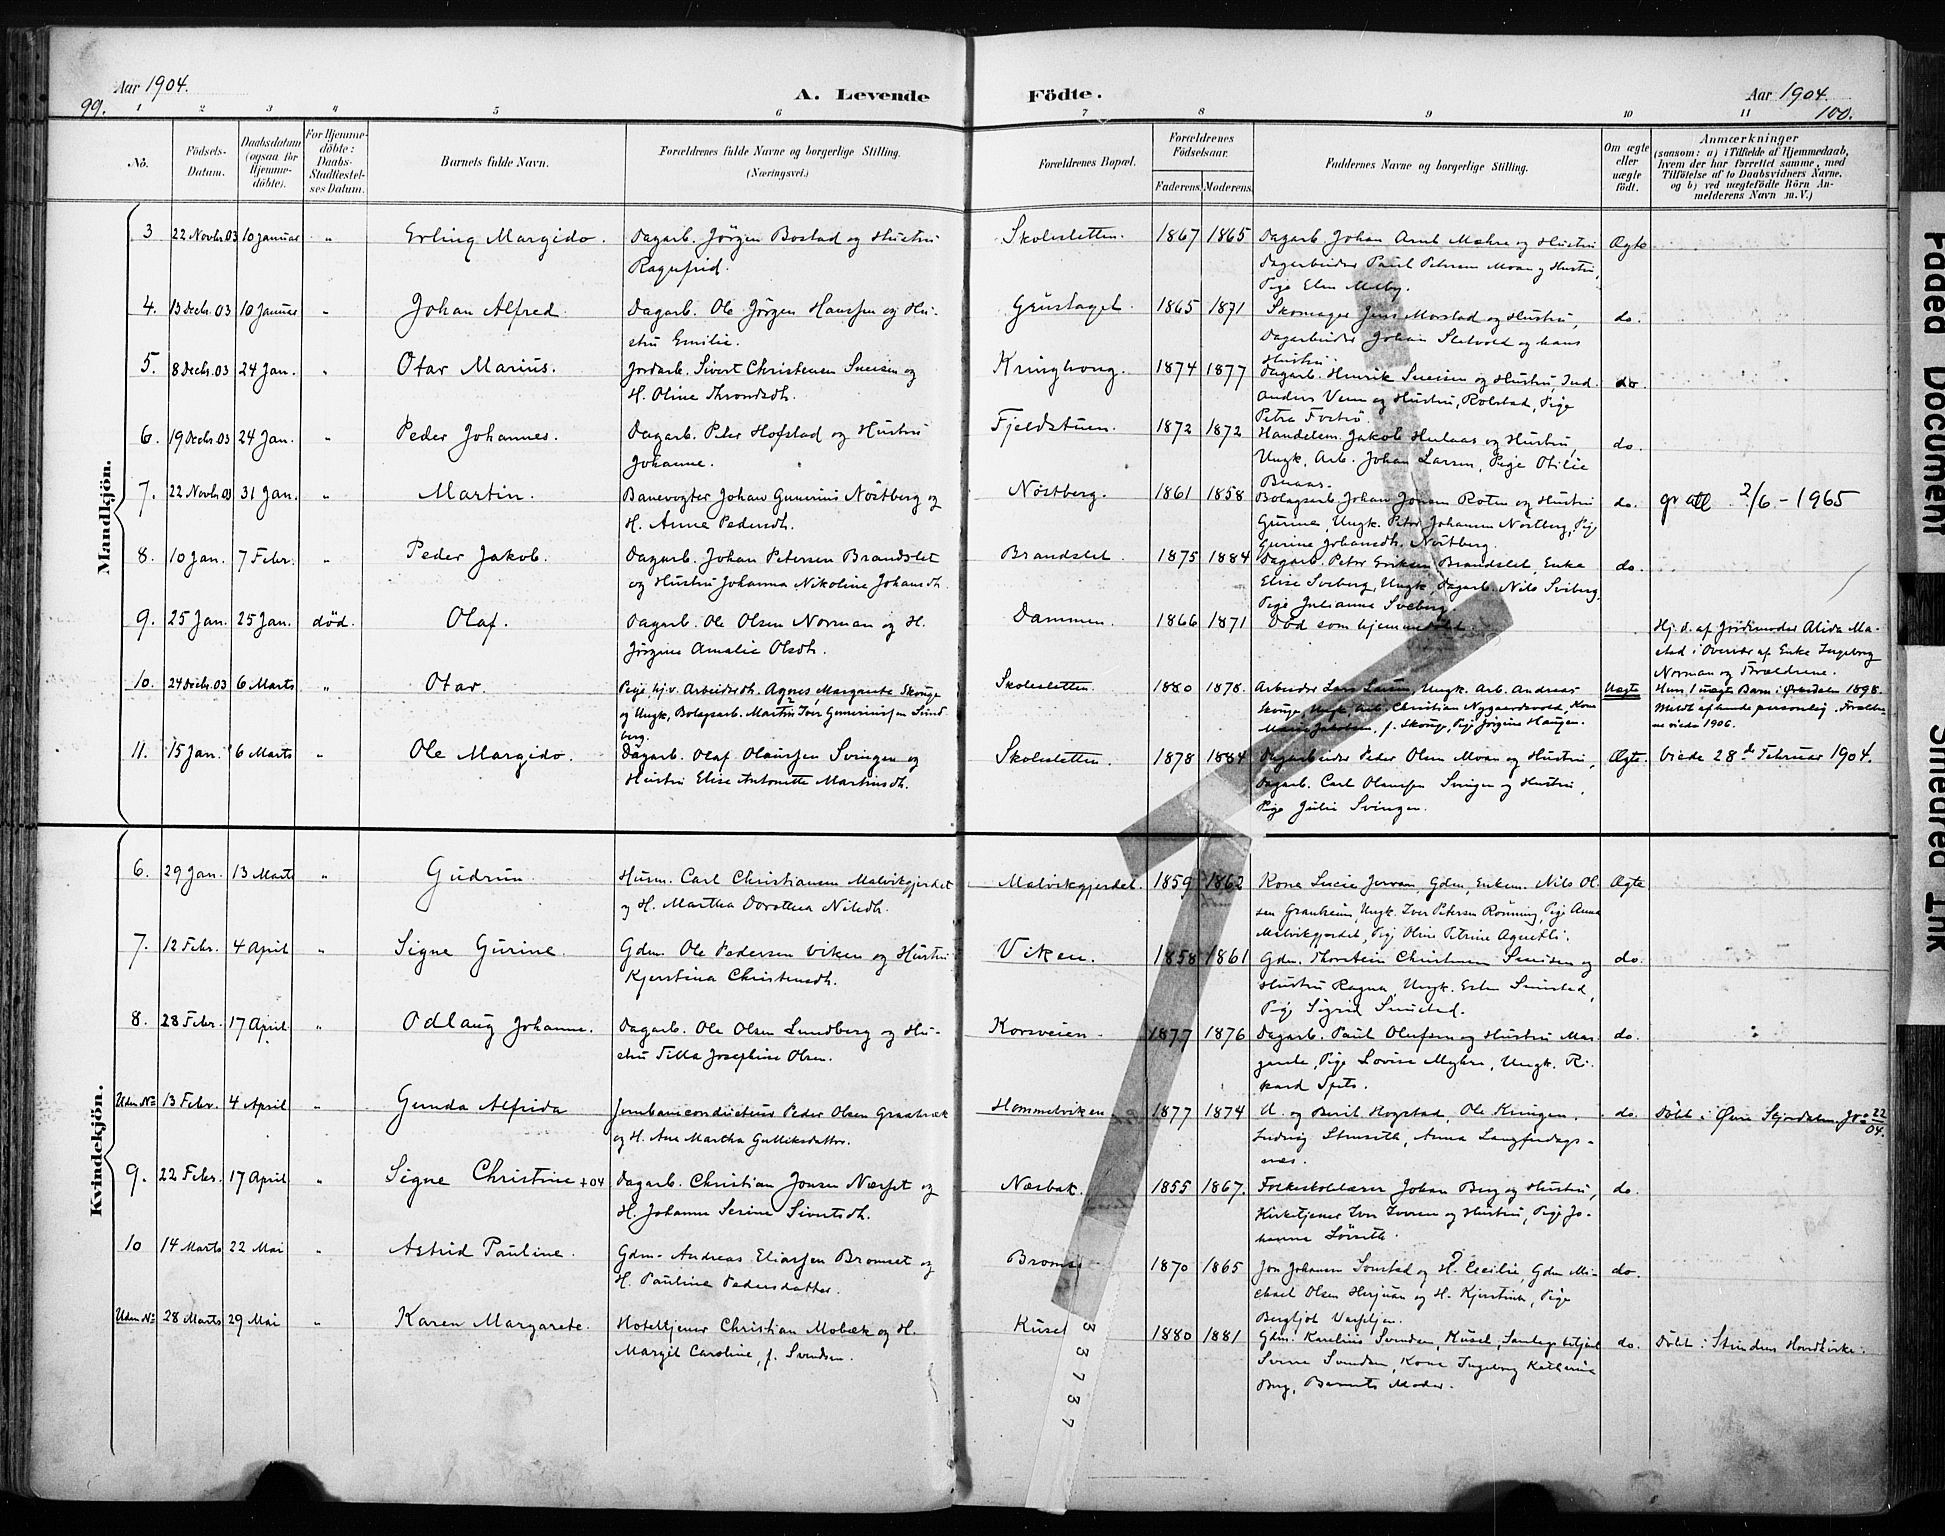 Aar 1904.
99.
A. Levende
Födte.
Aar 1904.
100.
1 2 3 4 5 6 7 8 9 10 11
No.
Födsels-Datum.
Daabsdatum (ogsaa for Hjemme-döbte).
For Hjemme-döbte: Daabs-Stadfæstel-ses Datum.
Barnets fulde Navn.
Forældrenes fulde Navne og borgerlige Stilling. (Næringsvei.)
Forældrenes Bopæl.
Forældrenes Födselsaar.
Faderens. Moderens.
Faddernes Navne og borgerlige Stilling.
Om ægte eller uægte födt.
Anmærkninger
(saasom: a) i Tilfælde af Hjemmedaab, hvem der har forrettet samme, med Tilföielse af to Daabsvidners Navne, og b) ved uægtefödte Börn An-melderens Navn m. V.)
Mandkjön.
3 22 Novbr. 03 10 Januar " Erling Margido. Dagarb. Jörgen Bostad og Hustru
Ragnfrid.
Skolesletten. 1867 1865 Dagarb. Johan Arnt Mæhre og Hustru Ægte
Dagarbeider Paul Petersen Moan og Hustru,
Pige Elen Melby.
4. 13 Decbr. 03 10 Januar " Johan Alfred. Dagarb. Ole Jörgen Hanssen og Hu-
stru Emilie.
Grustaget. 1865 1871 Skomager Jens Morstad og Hustru, do.
Dagarbeider Johan Sletvold og hans
Hustru.
5. 8 Decbr. 03 24 Jan. " Otar Marius. Jordarb. Sivert Christensen Sneisen og
H. Oline Throndsdtr.
Kringhong. 1874 1877 Dagarb. Henrik Sneisen og Hustru, Ind. do
Anders Venn og Hustru, Rolstad, Pige
Petra Foströ.
6. 19 Decbr. 03 24 Jan. " Peder Johannes. Dagarb. Peter Hofstad og Hustru
Johanne.
Fjeldstuen. 1872 1872 Handelsm. Jakob Herlaas og Hustru, do.
Ungk. Arb. Johan Larsen, Pige Otilie
Buaas.
7. 22 Novbr. 03 31 Jan. " Martin. Banevogter Johan Gunerius Nöstberg og
H. Anne Pedersdtr.
Nöstberg. 1861 1858 Bolagsarb. Johan Jonsen Roten og Hustru do. 2/6 - 1965
Gurine, Ungk. Peter Johansen Nöstberg, Pige
Gurine Johansdtr. Nöstberg.
8. 10 Jan. 7 Febr. " Peder Jakob. Dagarb. Johan Petersen Brandslet
og Hustru Johanna Nikoline Johansdtr.
Brandslet. 1875 1884 Dagarb. Peter Eriksen Brandslet, Enke do.
Elise Sveberg, Ungk. Dagarb. Nils Sveberg,
Pige Julianna Sveberg.
9. 25 Jan. 25 Jan. död. Olaf. Dagarb. Ole Olsen Norman og H.
Jörgine Amalie Olsdtr.
Dammen. 1866 1871 Död som hjemmedöbt.
Hj. d. af Jordemoder Alida Ma-
stad i Overvær af Enke Ingeborg
Norman og Forældrene.
10. 24 Decbr. 03 6 Marts " Otar. Pige, hj.v. Arbeiderdtr. Agnes Margareta Skouge
og Ungk. Bolagsarb. Martin Iver Gunerinssen Lund-
berg.
Skolesletten. 1880 1878. Arbeider Lars Larsen, Ungk. Arb. Andreas Uægte
Skouge, Ungk. Arb. Christian Nygaardsvold, Kone
Marie Jakobsen, f. Skouge, Pige Jörgine Haugen.
Hun 1 uægte Barn i Örkedalen 1898.
Meldt af hende personlig. Forældre-
ne viede 1906.
11. 15 Jan. 6 Marts " Ole Margido. Dagarb. Olaf Olaussen Svingen og
Hustru Elise Antonette Martinsdtr.
Skolesletten. 1878 1884 Dagarbeider Peder Olsen Moan og Hustru, Ægte. Viede 28de Februar 1904.
Dagarb. Carl Olaussen Svingen og Hustru,
Pige Julie Svingen.
Kvindekjön.
6. 29 Jan. 13 Marts " Gudrun. Husm. Carl Christiansen Malvikgjerdet
og H. Martha Dorothea Nilsdtr.
Malvikgjerdet. 1859 1862 Kone Lucie Jervan, Gdm. Enkem. Nils Ol- Ægte
sen Granheim, Ungk. Iver Petersen Rönning, Pige Anna
Malvikgjerdet, Pige Oline Petrine
7. 12 Febr. 4 April " Signe Gurine. Gdm. Ole Pedersen Viken og Hustru
Kjerstina Christensdtr.
Viken. 1858 1861 Gdm. Thorstein Christensen Sneisen og do.
Hustru Ragna, Ungk. Sunstad,
Pige Sigrid Sunstad.
8. 28 Febr. 17 April " Odlaug Johanne. Dagarb. Ole Olsen Lundberg og Hu-
stru Tilla Josephine Olsen.
Korsveien. 1877 1876 Dagarb. Paul Olufsen og Hustru Mar- do.
garete, Pige Lovise Myhre, Ungk. Ri-
kard Spets.
Uden No 13 Febr. 4 April " Gunda Alfrida Jernbaneconducteur Peder Olsen Graabræk
og H. Ane Martha Gulliksdatter.
Hommelviken 1877 1874 A. og Berit Hogstad, Ole Kringen, do. Döbt i Övre Stjördalen 22/04.
Ludvig Stenseth, Anna Langfordags-
næs.
9. 22 Febr. 17 April " Signe Christine +04 Dagarb. Christian Jonsen Næsset og
H. Johanne Serine Sivertsdtr.
Næsbak. 1855 1867. Folkeskolelærer Johan Berg og Hustru, do.
Kirketjener Iver Iversen og Hustru, Pige Jo-
hanna Lörseth.
10 14 Marts 22 Mai " Astrid Pauline. Gdm. Andreas Eliassen Bromset og
H. Pauline Pedersdatter.
Bromse 1870 1865 Jon Johansen Sunstad og H. Cecilie, Gdm. Mi- do.
chael Olsen Herjuan og H. Kjerstina, Pige
Bergljot
Uden No 28 Marts 29 Mai " Karen Margarete. Hoteltjener Christian Mobæk og H.
Margit Caroline, f. Svendsen.
Kusel 1880 1881 Gdm. Karelius Svendsen, Kusel, Samlagsbetjent do. Döbt i Strindens Hovedkirke.
Sverre Svendsen, Kone Ingeborg Katharina
Berg, Barnets Moder.
33737
Faded Document
Smeared Ink